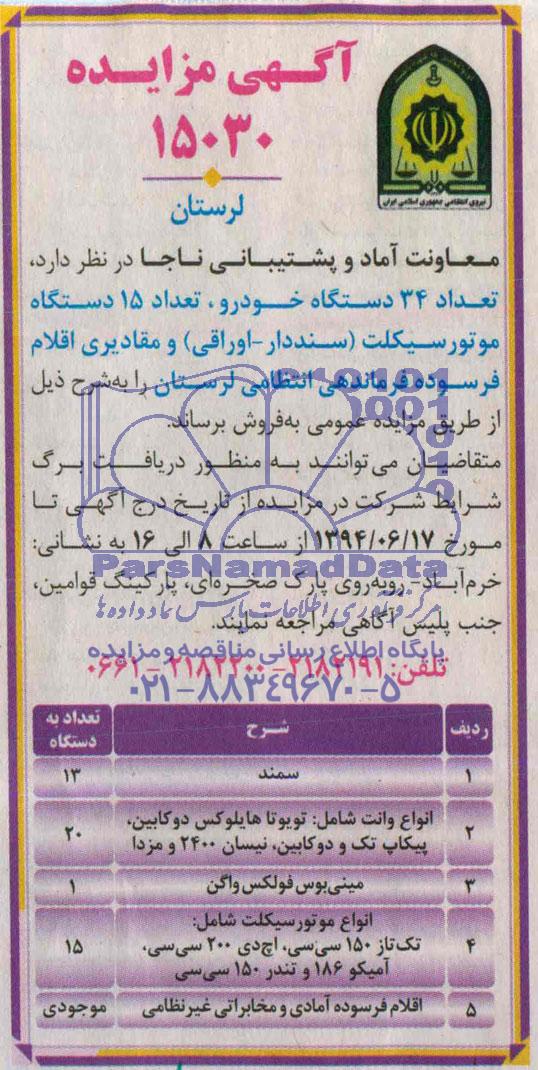 آگهی مزایده
۱۵۰۳۰
لرستان
نیروی انتظامی جمهوری اسلامی ایران
معاونت آماد و پشتیبانی ناجا در نظر دارد،
تعداد ۳۴ دستگاه خودرو، تعداد ۱۵ دستگاه
موتورسیکلت (سنددار-اوراقی) و مقادیری اقلام
فرسوده فرماندهی انتظامی لرستان را به‌شرح ذیل
از طریق مزایده عمومی به‌فروش برساند.
متقاضیان می‌توانند به منظور دریافت برگ
شرایط شرکت در مزایده از تاریخ درج آگهی تا
مورخ ۱۳۹۴/۰۶/۱۷ از ساعت ۸ الی ۱۶ به نشانی:
خرم‌آباد- روبه‌روی پارک صخره‌ای، پارکینگ قوامین،
جنب پلیس آگاهی مراجعه نمایند.
تلفن: ۲۱۸۲۱۹۱-۲۱۸۲۲۰۰-۰۶۶۱
ParsNamadData
مرکز فرآوری اطلاعات پارس نماد داده‌ها
پایگاه اطلاع رسانی مناقصه و مزایده
۰۲۱-۸۸۳۴۹۶۷۰-۵
ردیف شرح تعداد به دستگاه
۱ سمند ۱۳
۲ انواع وانت شامل: تویوتا هایلوکس دوکابین،
پیکاپ تک و دوکابین، نیسان ۲۴۰۰ و مزدا ۲۰
۳ مینی‌بوس فولکس واگن ۱
۴ انواع موتورسیکلت شامل:
تک‌تاز ۱۵۰ سی‌سی، اچ‌دی ۲۰۰ سی‌سی،
آمیکو ۱۸۶ و تندر ۱۵۰ سی‌سی ۱۵
۵ اقلام فرسوده آمادی و مخابراتی غیرنظامی موجودی